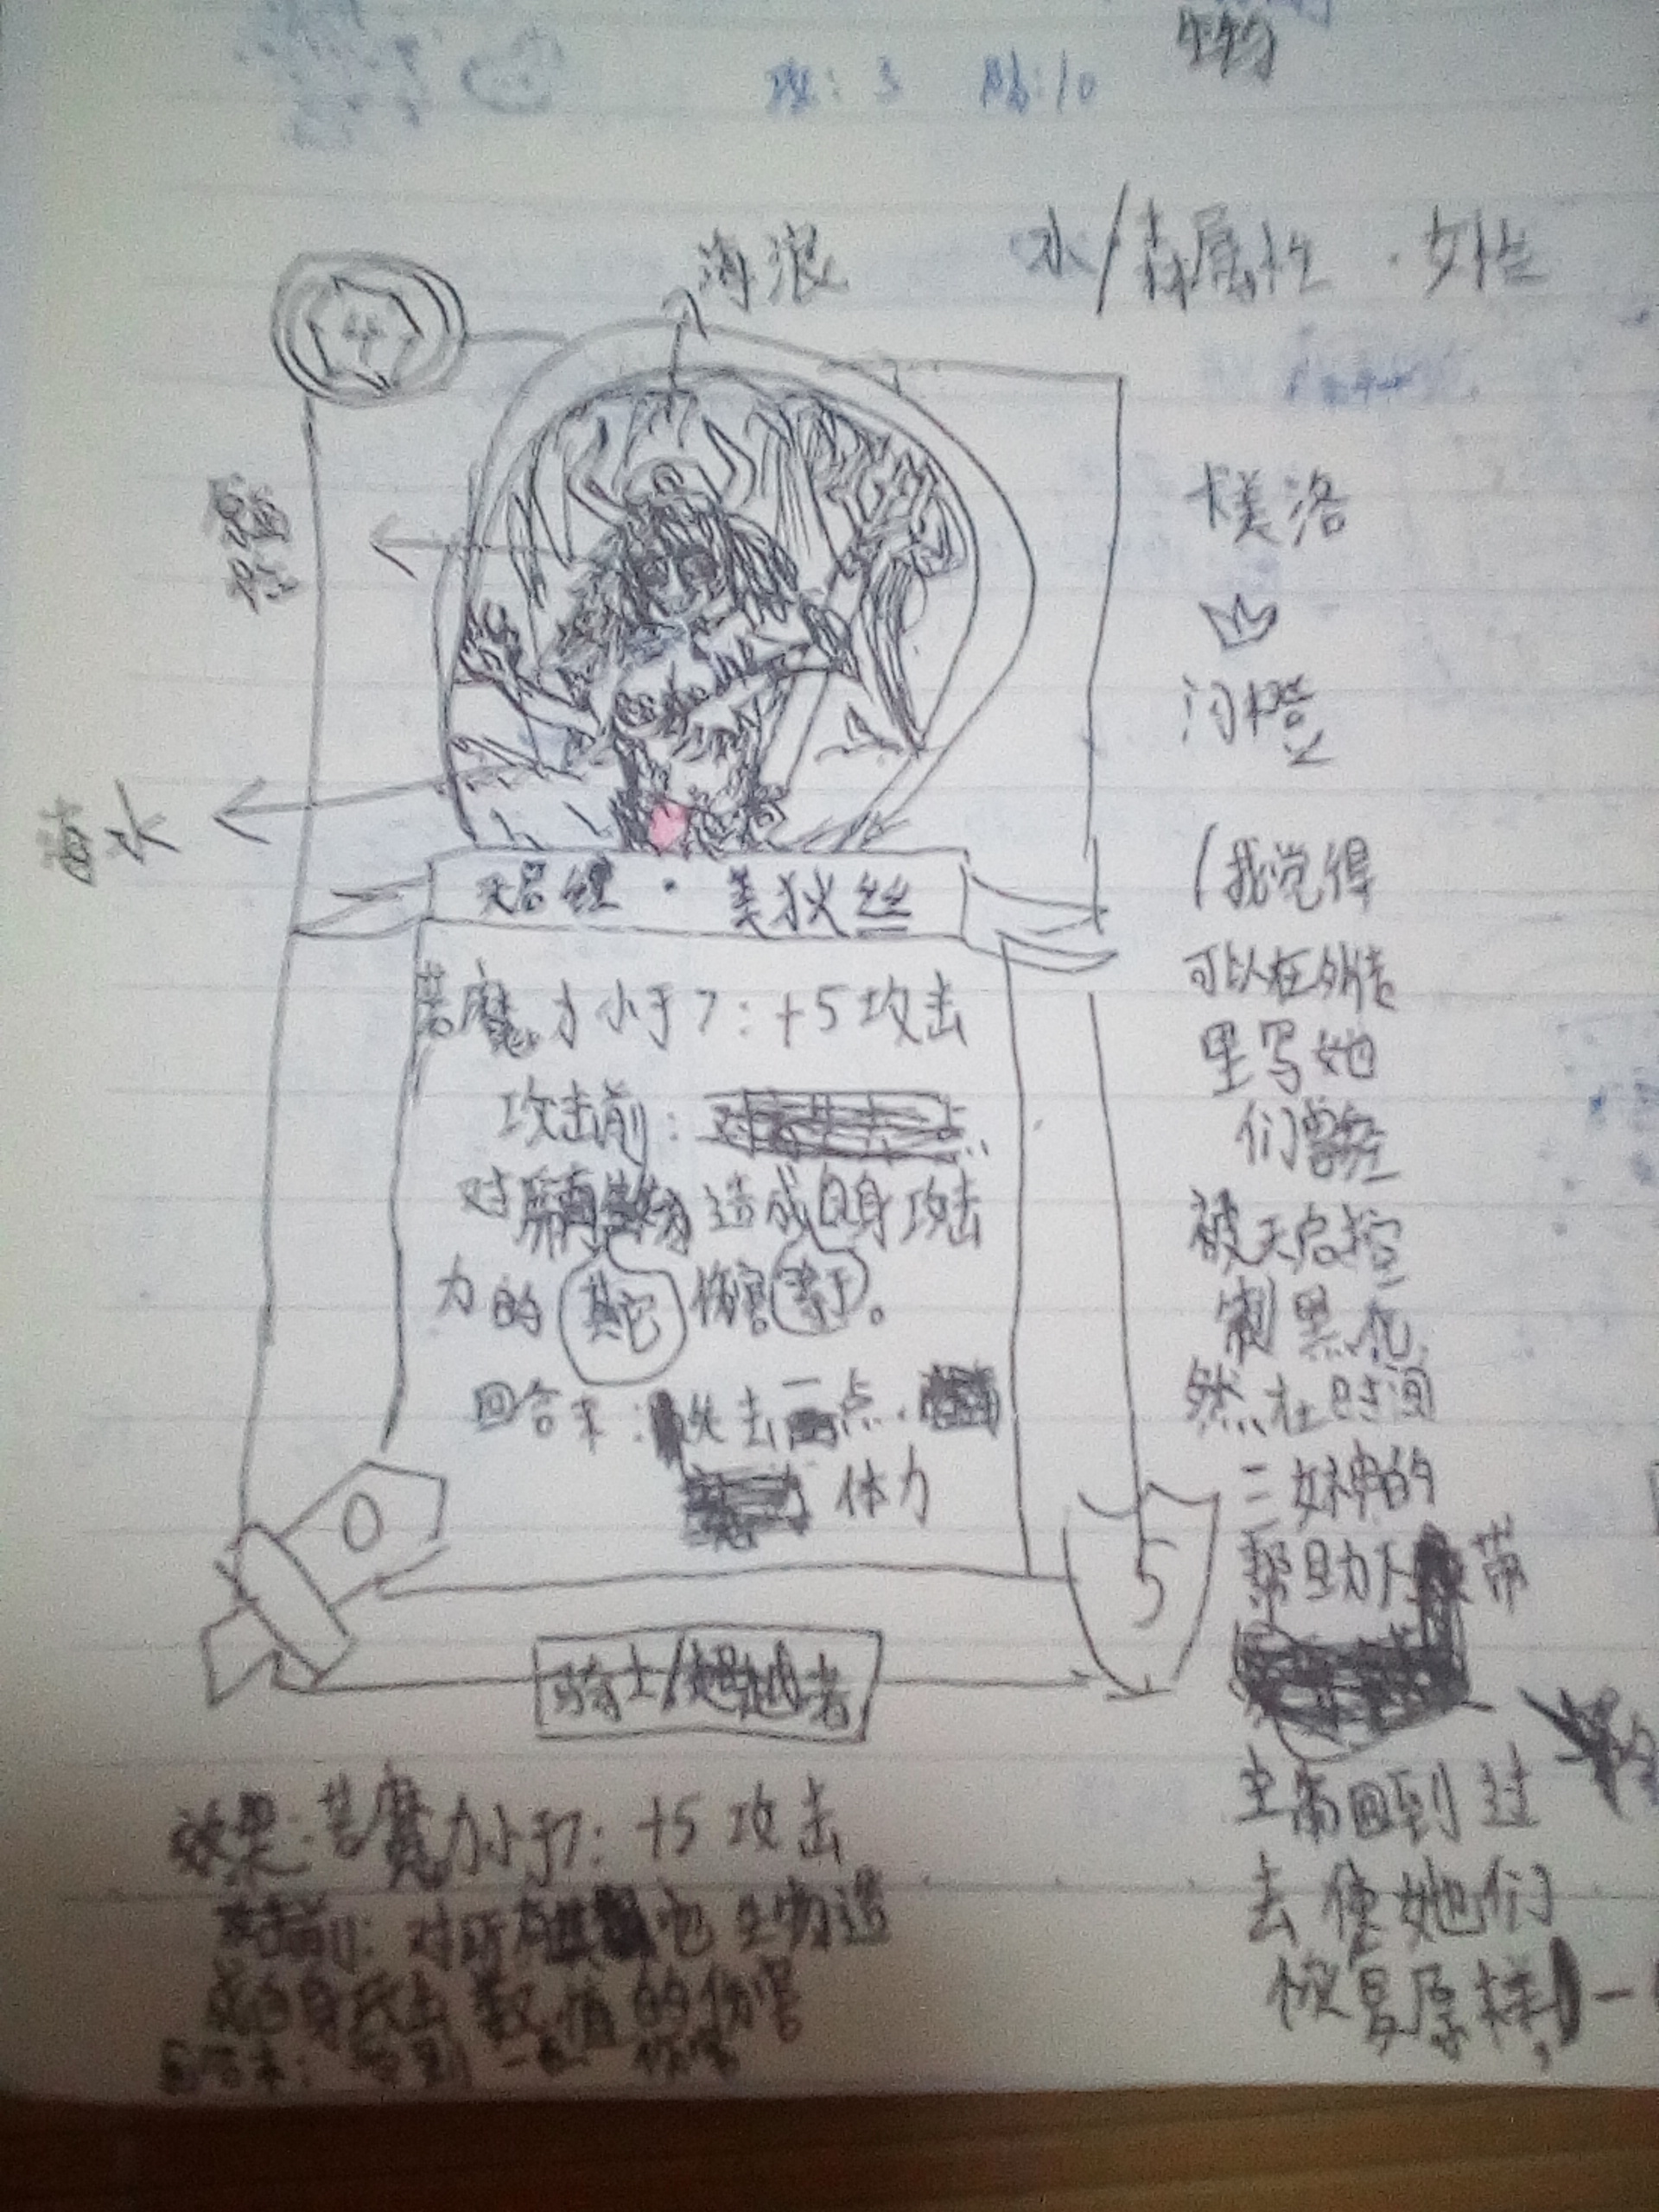 生物
攻:3
海浪
水/森属性·女性
4
海水
卡美洛
闪橙
·美狄丝
若魔力小于7:+5攻击
攻击前:
对所有生物造成自身攻击
力的 其它 伤害 。
回合末:失去一点
体力
0
5
骑士/超越者
(我觉得
可以在外传
里写她
们曾经
被天启控
制黑化
然在时间
三女神的
帮助下 带
主角回到过
去使她们
恢复原样)
效果:若魔力小于7:+5攻击
攻击前:对所有其它生物造
成自身攻击数值的伤害
回合末:受到一点伤害